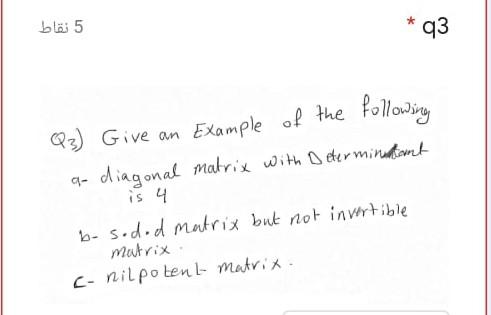 5 نقاط
* q3
Q3) Give an Example of the following
a- diagonal matrix with Determinant
is 4
b- s.d.d matrix but not invertible
matrix.
c- nilpotent matrix.